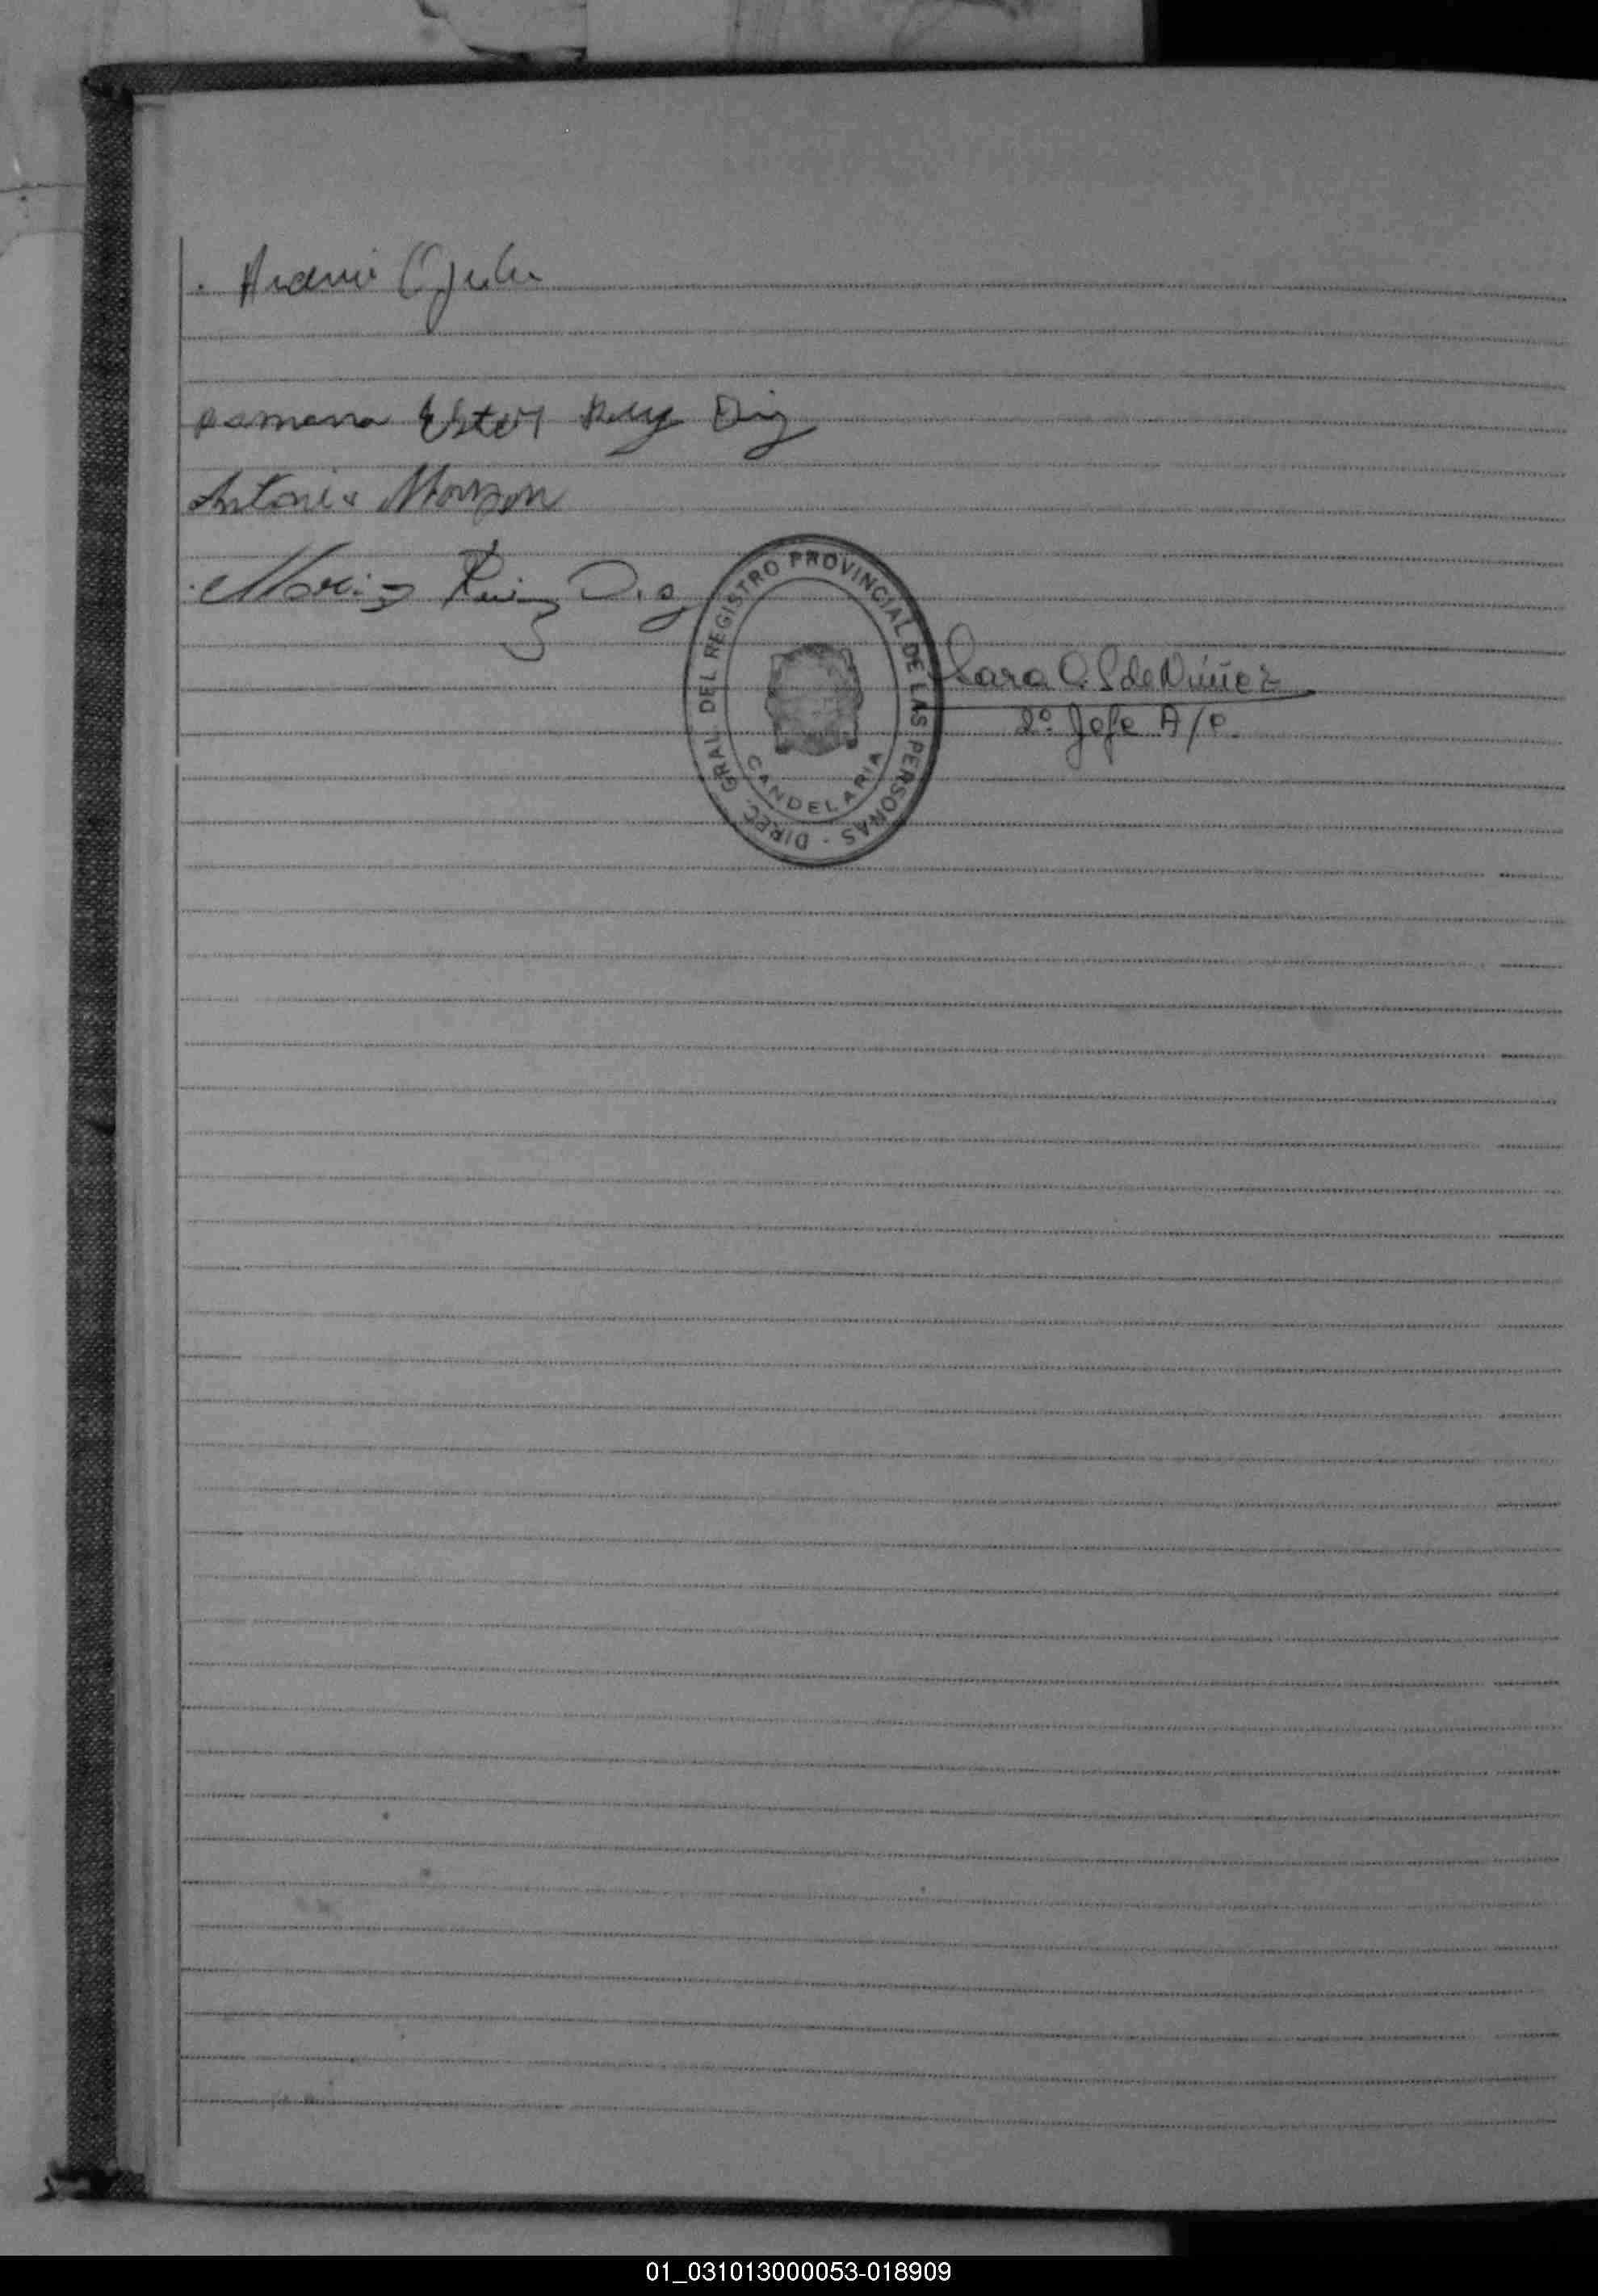 Ramona Ester Ruiz Diaz
Antonio Monzon
Maria Ruiz Diaz
DIREC. GRAL. DEL REGISTRO PROVINCIAL DE LAS PERSONAS -
CANDELARIA
Sara C. S de Núñez
2º Jefe A/C.
01_031013000053-018909